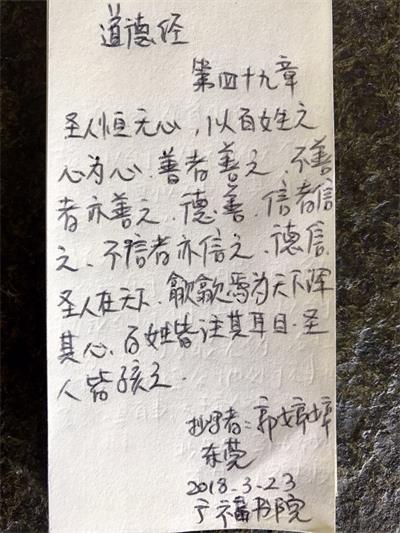 道德经
第四十九章
圣人恒无心,以百姓之
心为心.善者善之.不善
者亦善之.德善.信者信
之、不信者亦信之.德信.
圣人在天下.歙歙焉为天下浑
其心.百姓皆注其耳目.圣
人皆孩之.
抄写者:郭婷婷
东莞
2018-3-23
广福书院